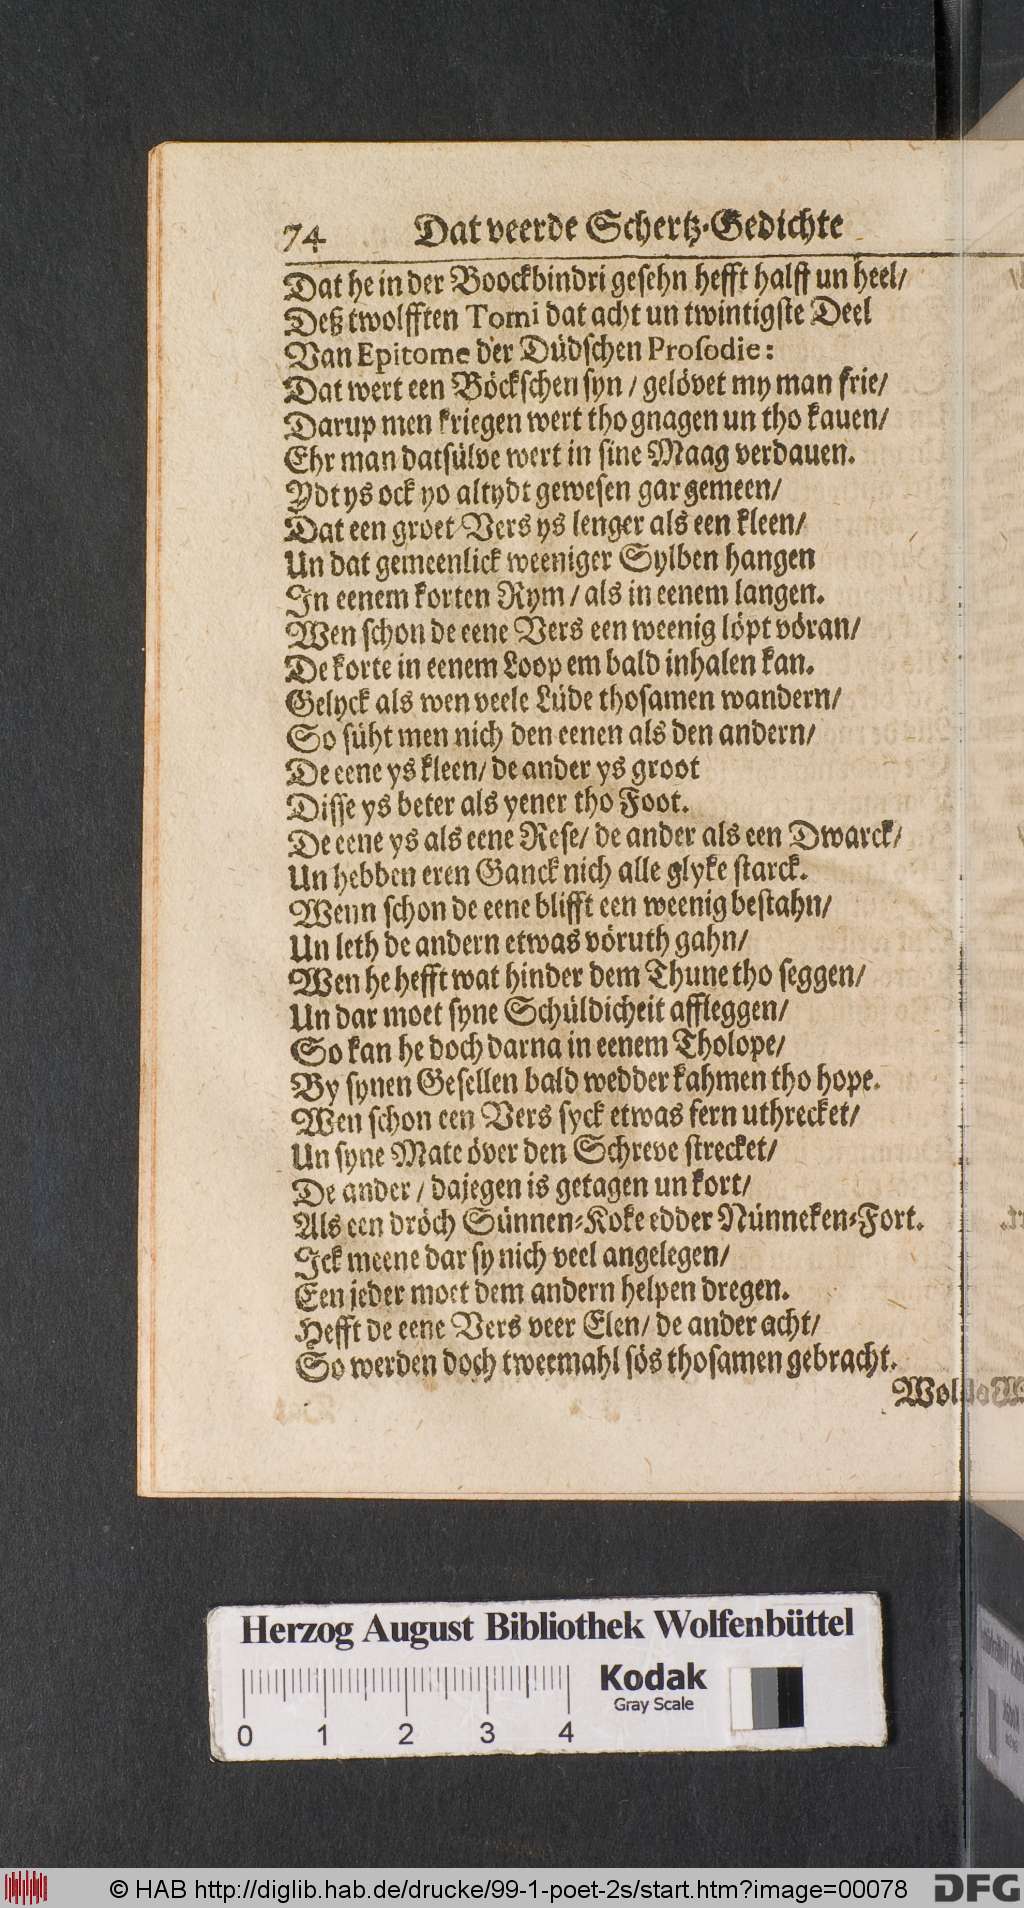 74 Dat veerde Schertz-Gedichte
Dat he in der Boockbindri gesehn hefft halff un heel/
Deß twolfften Tomi dat acht un twintigste Deel
Van Epitome der Düdschen Prosodie:
Dat wert een Böckschen syn / gelövet my man frie/
Darup men kriegen wert tho gnagen un tho kauen/
Ehr man datsülve wert in sine Maag verdauen.
Ydt ys ock yo altydt gewesen gar gemeen/
Dat een groet Vers ys lenger als een kleen/
Un dat gemeenlick weeniger Sylben hangen
In eenem korten Rym / als in eenem langen.
Wen schon de eene Vers een weenig löpt vöran/
De korte in eenem Loop em bald inhalen kan.
Gelyck als wen veele Lüde thosamen wandern/
So süht men nich den eenen als den andern/
De eene ys kleen/ de ander ys groot
Disse ys beter als yener tho Foot.
De eene ys als eene Rese/ de ander als een Dwarck/
Un hebben eren Ganck nich alle glyke starck.
Wenn schon de eene blifft een weenig bestahn/
Un leth de andern etwas vöruth gahn/
Wen he hefft wat hinder dem Thune tho seggen/
Un dar moet syne Schüldicheit affleggen/
So kan he doch darna in eenem Tholope/
By synen Gesellen bald wedder kahmen tho hope.
Wen schon een Vers syck etwas fern uthrecket/
Un syne Mate över den Schreve strecket/
De ander / dajegen is getagen un kort/
Als een dröch Sünnen-Koke edder Nünneken-Fort.
Ick meene dar sy nich veel angelegen/
Een jeder moet dem andern helpen dregen.
Hefft de eene Vers veer Elen/ de ander acht/
So werden doch tweemahl sös thosamen gebracht.
Herzog August Bibliothek Wolfenbüttel
Kodak
Gray Scale
0 1 2 3 4
© HAB http://diglib.hab.de/drucke/99-1-poet-2s/start.htm?image=00078
DFG